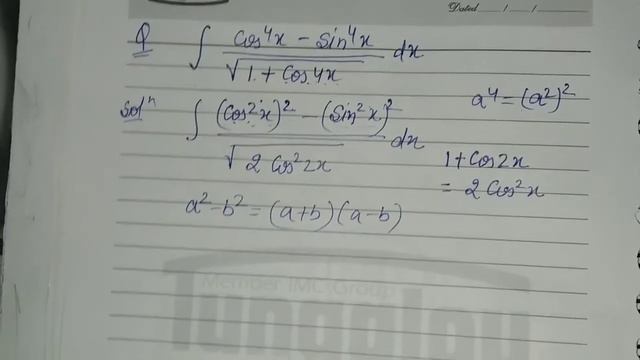 Dated ___/___/___
Q ∫ (cos⁴x − sin⁴x)/√(1 + cos4x) dx
a⁴ = (a²)²
Solⁿ ∫ ((cos²x)² − (sin²x)²)/√(2cos²2x) dx
1 + cos2x
= 2cos²x
a² − b² = (a+b)(a−b)
Member IMC Group
Tungaloy